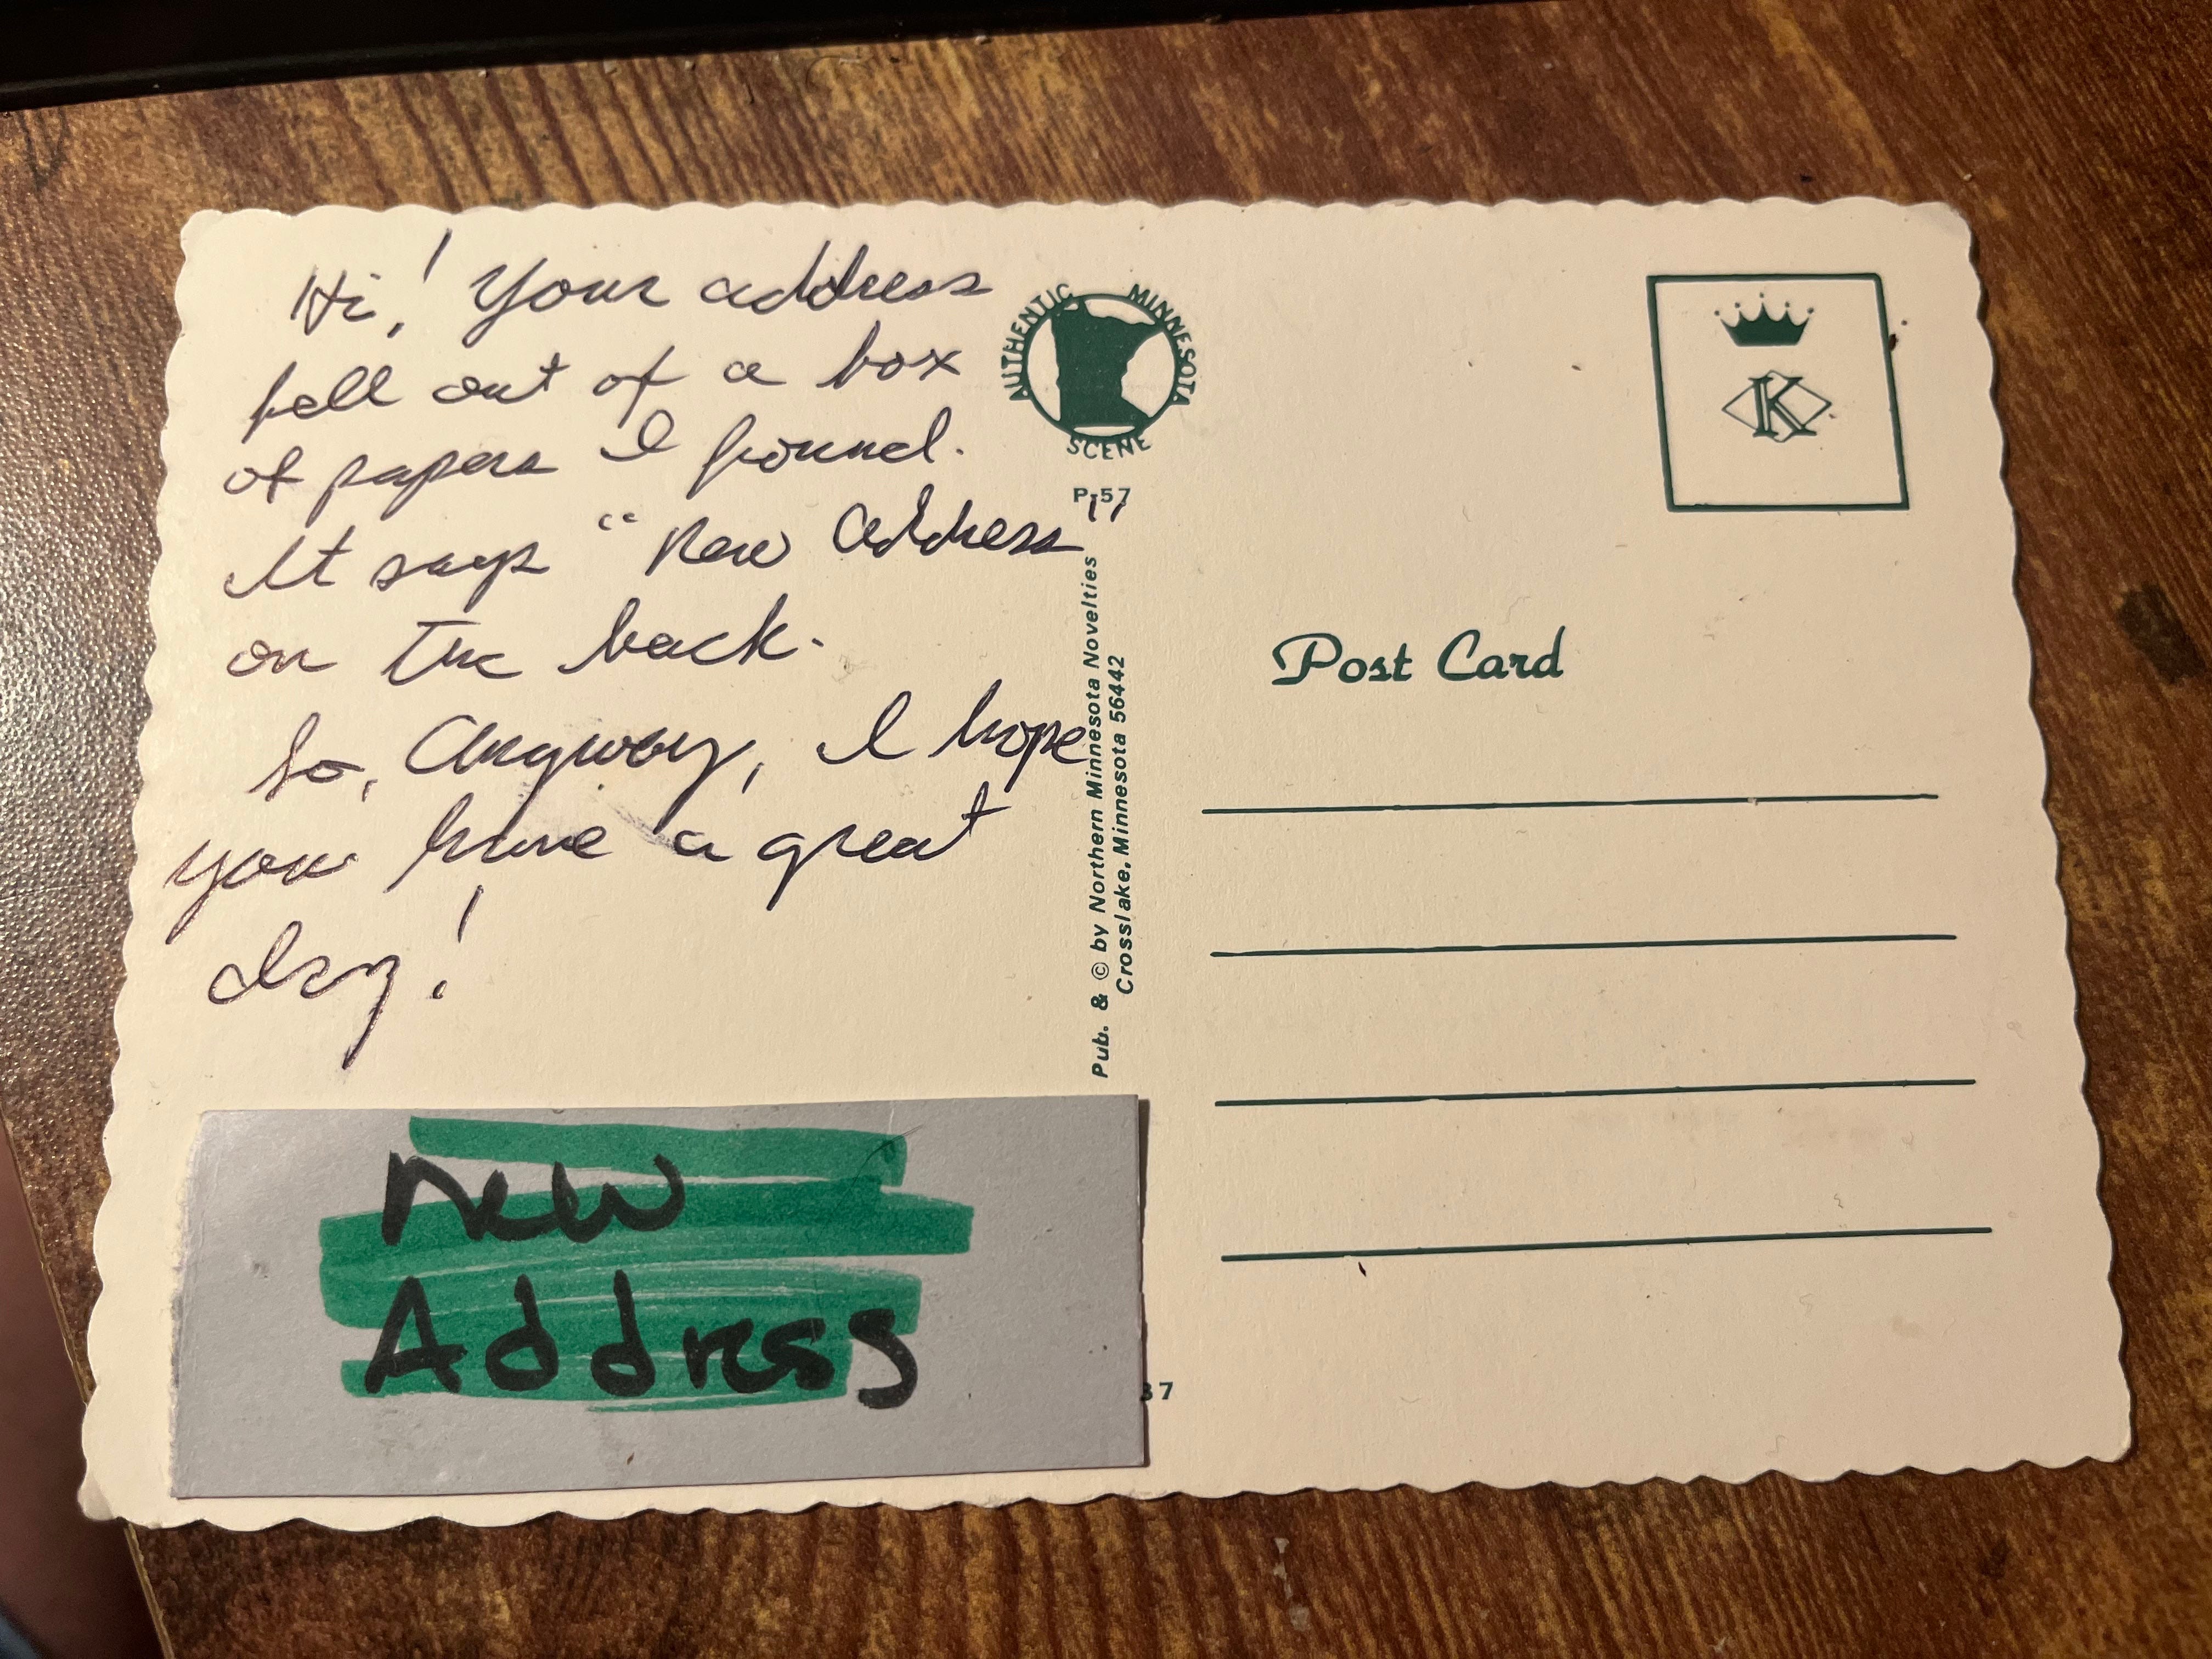 Hi! Your address
fell out of a box
of papers I found.
It says "New Address"
on the back.
So, Anyway, I hope
you have a great
day!
New
Address
AUTHENTIC MINNESOTA
SCENE
P-57
Pub. & © by Northern Minnesota Novelties
Crosslake, Minnesota 56442
37
K
Post Card